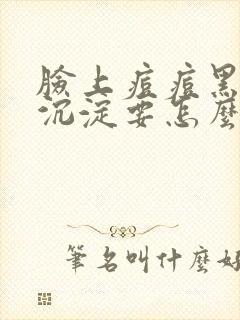 臉上痘痘黑
沉淀要怎麼
筆名叫什麼好